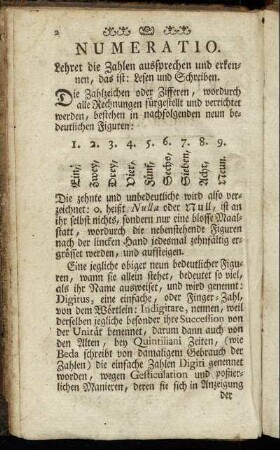 2
NUMERATIO.
Lehret die Zahlen außsprechen und erken-
nen, das ist: Lesen und Schreiben.
Die Zahlzeichen oder Zifferen, wordurch
alle Rechnungen fürgestellt und verrichtet
werden, bestehen in nachfolgenden neun be-
deutlichen Figuren:
1. 2. 3. 4. 5. 6. 7. 8. 9.
Ein, Zwey, Drey, Vier, Fünf, Sechs, Sieben, Acht, Neun.
Die zehnte und unbedeutliche wird also ver-
zeichnet: 0. heißt Nulla oder Null, ist an
ihr selbst nichts, sondern nur eine blosse Maal-
statt, wordurch die nebenstehende Figuren
nach der lincken Hand jedesmal zehnfältig er-
grösset werden, und aufsteigen.
Eine jegliche obiger neun bedeutlicher Figu-
ren, wann sie allein stehet, bedeutet so viel,
als ihr Name ausweiset, und wird genennt:
Digitus, eine einfache, oder Finger-Zahl,
von dem Wörtlein: Indigitare, nennen, weil
derselben jegliche besonder ihre Succession von
der Unität benennet, darum dann auch von
den Alten, bey Quintiliani Zeiten, (wie
Beda schreibt von damaligem Gebrauch der
Zahlen) die einfache Zahlen Digiti genennet
worden, wegen Gesticulation und possier-
lichen Manieren, deren sie sich in Anzeigung
der